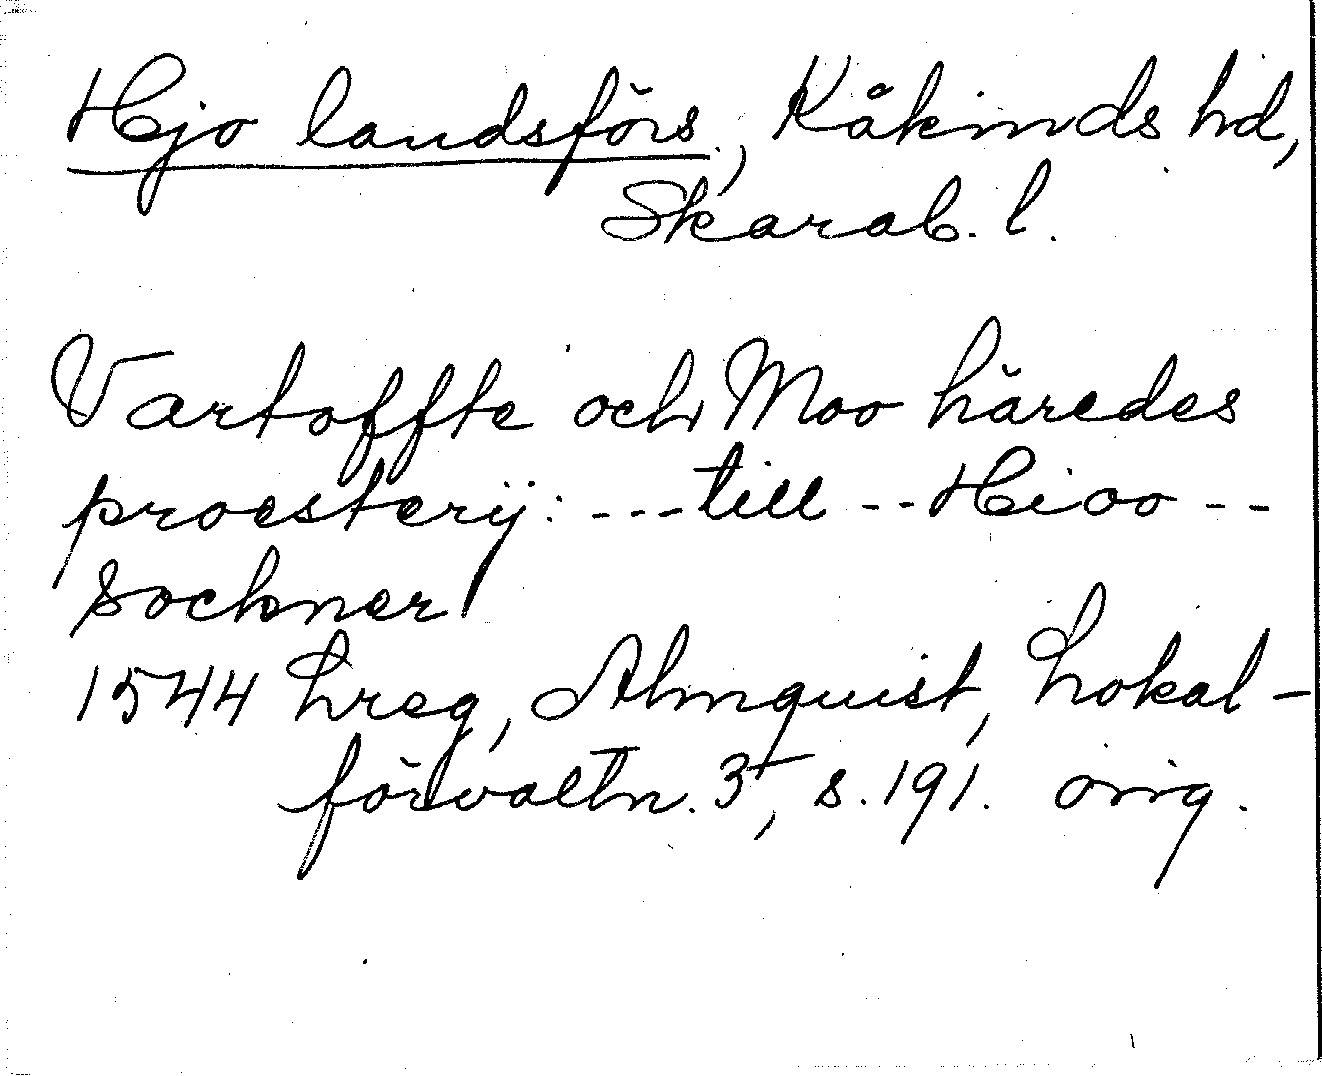 Hjo landsförs., Kåkinds hd,
Skarab. l.
Vartoffte och Moo häredes
proesterij: --- till -- Hioo --
Sockner
1544 Lreg, Almquist, Lokal-
förvaltn. 3, s. 191. orig.